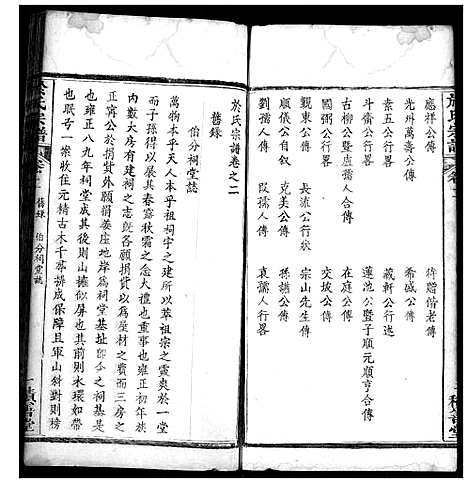 應祥公傳
待贈偕老傳
光州萬壽公傳
希咸公傳
素五公行畧
藏軒公行述
斗齋公行畧
蓮池公暨子順元順亨合傳
古柳公暨盧孺人合傳
在庭公傳
國弼公行畧
交坡公傳
親東公傳
長庚公行狀
宗山先生傳
順儀公自敘
克美公傳
孫諧公傳
劉孺人傳
袁孺人行畧
於氏宗譜卷之二
舊錄
伯分祠堂誌
萬物本乎天人本乎祖祠宇之建所以萃祖宗之靈爽於一堂
而子孫得以展其春露秋霜之念大禮也重事也雍正初年族
內數大房有建祠之志嚴各願捐貲以為屋材之費而三房之
正甯公於捐貲外願捐姜座地岸為祠堂基址即今之祠基是
也雍正八九年祠堂成其後則山擁似屏也其前則水環如帶
也既另一案收住元精古木千莽排成保障且軍山斜對則榜
於氏宗譜
卷之二
舊錄
伯分祠堂誌
一
積善堂